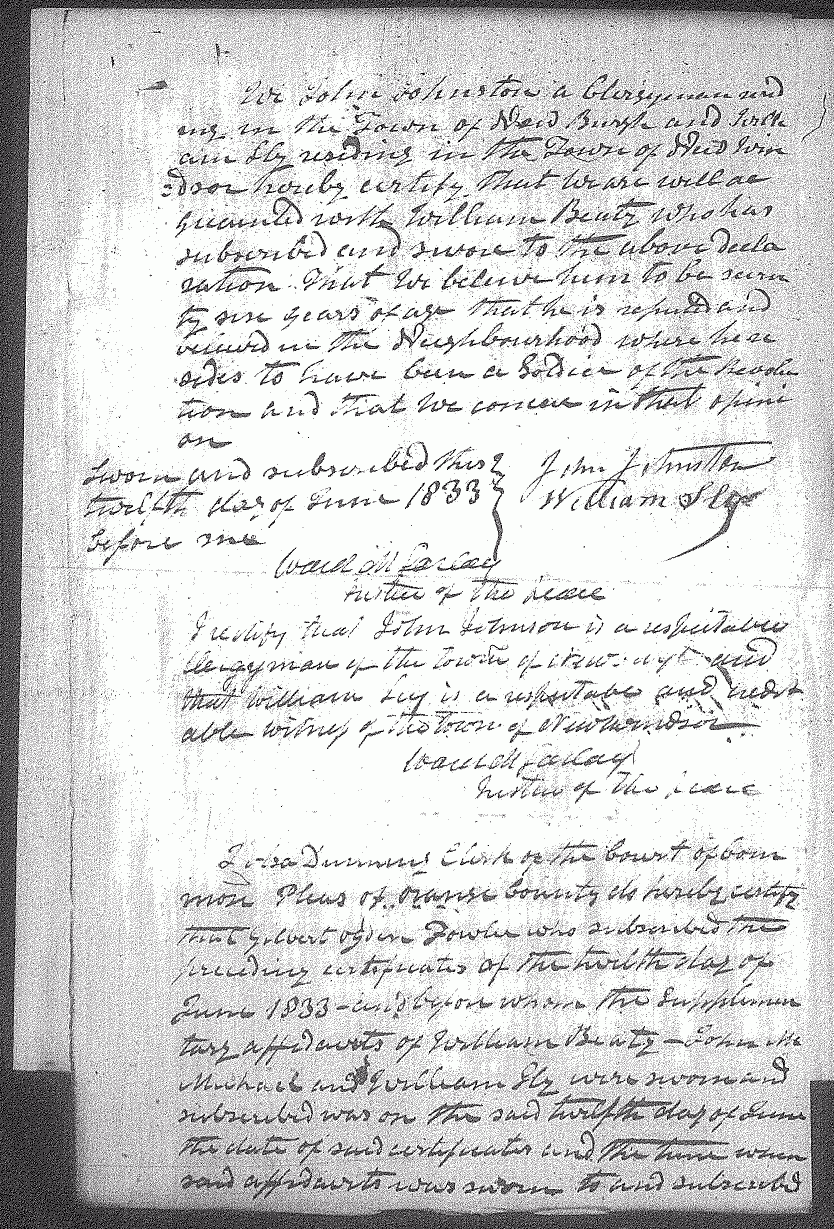 We John Johnston a Clergyman resid
ing in the Town of New Burgh and Willi
am Sly residing in the Town of New Win
dsor hereby certify that we are well ac
quainted with William Beaty who has
subscribed and sworn to the above decla
ration That We believe him to be seven
ty six years of age that he is reputed and
believed in the Neighbourhood where he re
sides to have been a Soldier of the Revolu
tion and that We concur in that opini
on
Sworn and subscribed this
twelfth day of June 1833
before me
John Johnston
William Sly
Ward M
Justice of the peace
I certify that John Johnson is a respectable
clergyman of the town of and
that William Sly is a respectable and credit
able witness of the town of Newwindsor
Ward M
Justice of the peace
I Asa Dunning Clerk of the Court of Com
mon Pleas of Orange County do hereby certify
that Gilbert Ogden Fowler who subscribed the
preceding certificates of the twelfth day of
June 1833 and before whom the Supplemen
tary affidavits of William Beaty John Mc
Michael and William Sly were sworn and
subscribed was on the said twelfth day of June
the date of said certificates and the time when
said affidavits was sworn to and subscribed